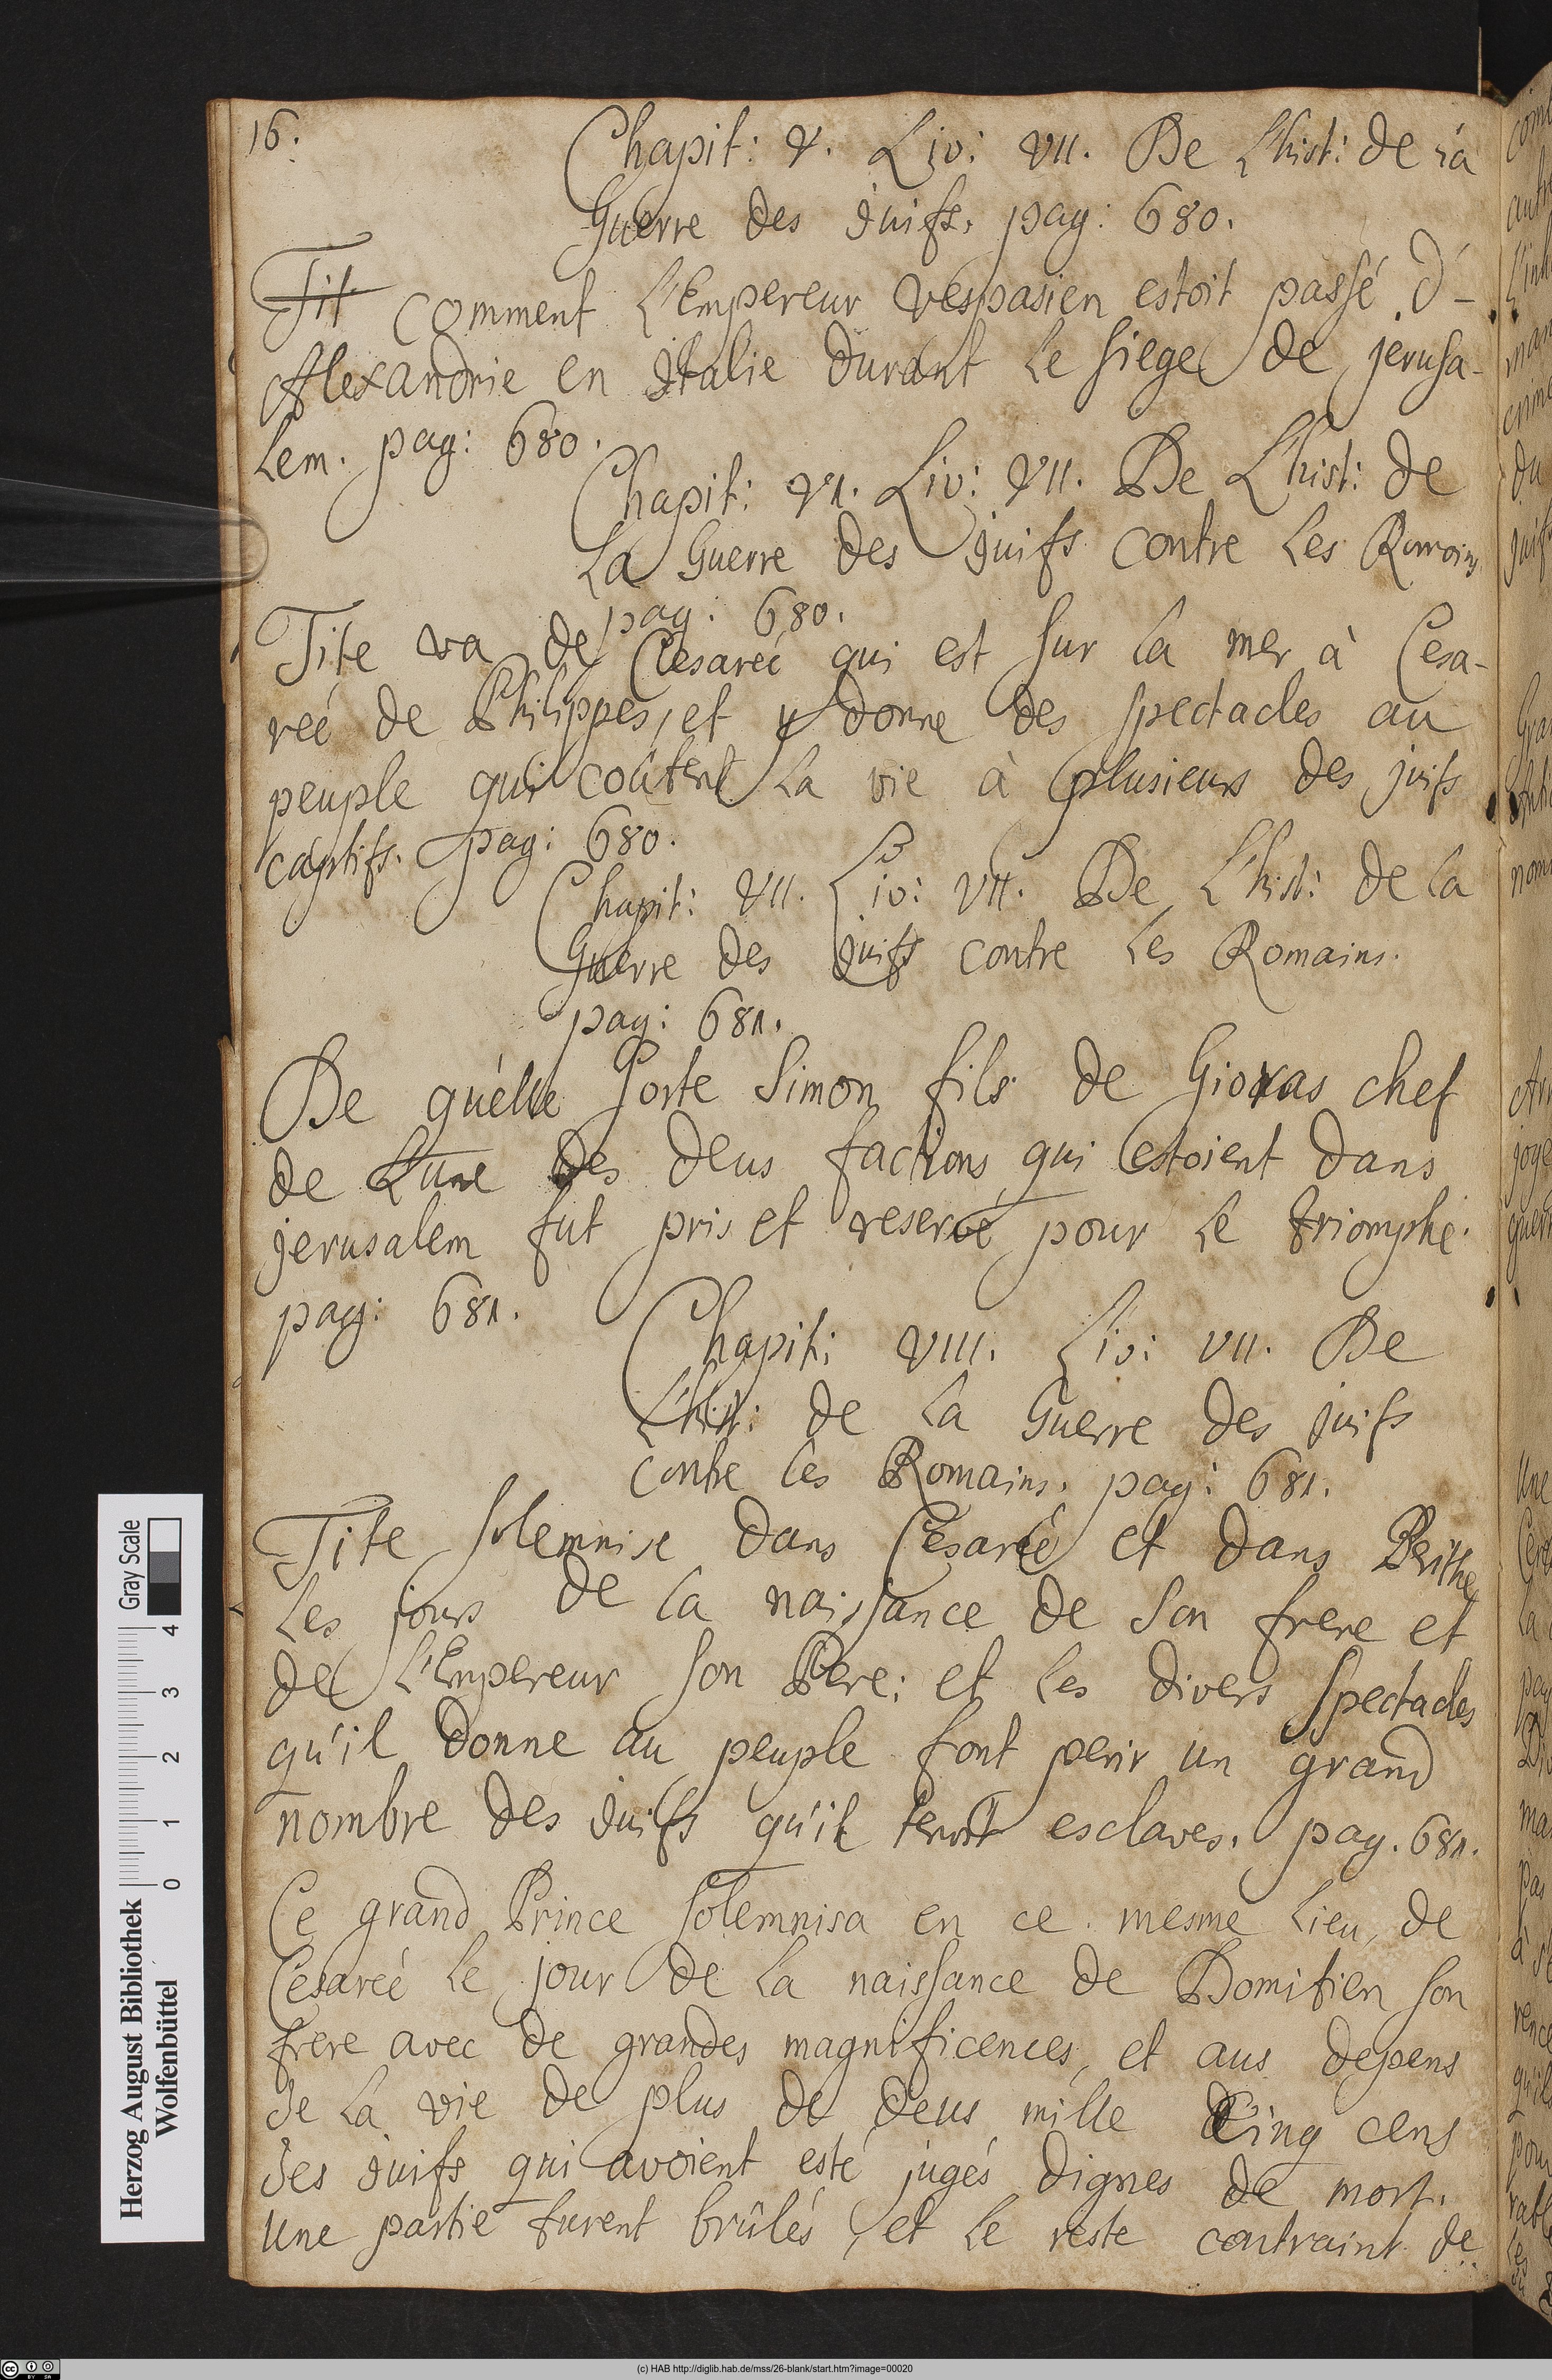 16.
Chapit: V. Liv: VII. De L'hist: de la
Guerre des juifs. pag: 680.
Tit comment L'Empereur Vespasien estoit passé d'-
Alexandrie en Italie durant le siege de jerusa-
lem. pag: 680.
Chapit: VI. Liv: VII. De L'hist: de
La Guerre des juifs contre les Romains
pag: 680.
Tite va de Cesareé qui est sur la mer à Cesa-
reé de Philippes, et y donne des spectacles au
peuple qui coûtent la vie à plusieurs des juifs
captifs. pag: 680.
Chapit: VII. Liv: VII. De L'hist: de la
Guerre des juifs contre les Romains.
pag: 681.
De quélle sorte Simon fils de Gioras chef
de L'une des deus factions qui estoient dans
jerusalem fut pris et reservé pour le triomphe.
pag: 681.
Chapit: VIII. Liv: VII. De
L'hist: de la Guerre des juifs
contre les Romains. pag: 681.
Tite solemnise dans Cesareé et dans Berithe
les jours de la naissance de son frere et
de L'Empereur son Pere; et les divers spectacles
qu'il donne au peuple font perir un grand
nombre des juifs qu'il tenoit esclaves. pag. 681.
Ce grand Prince solemnisa en ce mesme lieu, de
Cesareé le jour de la naissance de Domitien son
frere avec de grandes magnificences, et aus depens
de la vie de plus de deus mille Cinq cens
des juifs qui avoient esté jugés dignes de mort.
une partie furent brûlés, et le reste contraint de
Herzog August Bibliothek
Wolfenbüttel
0 1 2 3 4
Gray Scale
(c) HAB http://diglib.hab.de/mss/26-blank/start.htm?image=00020